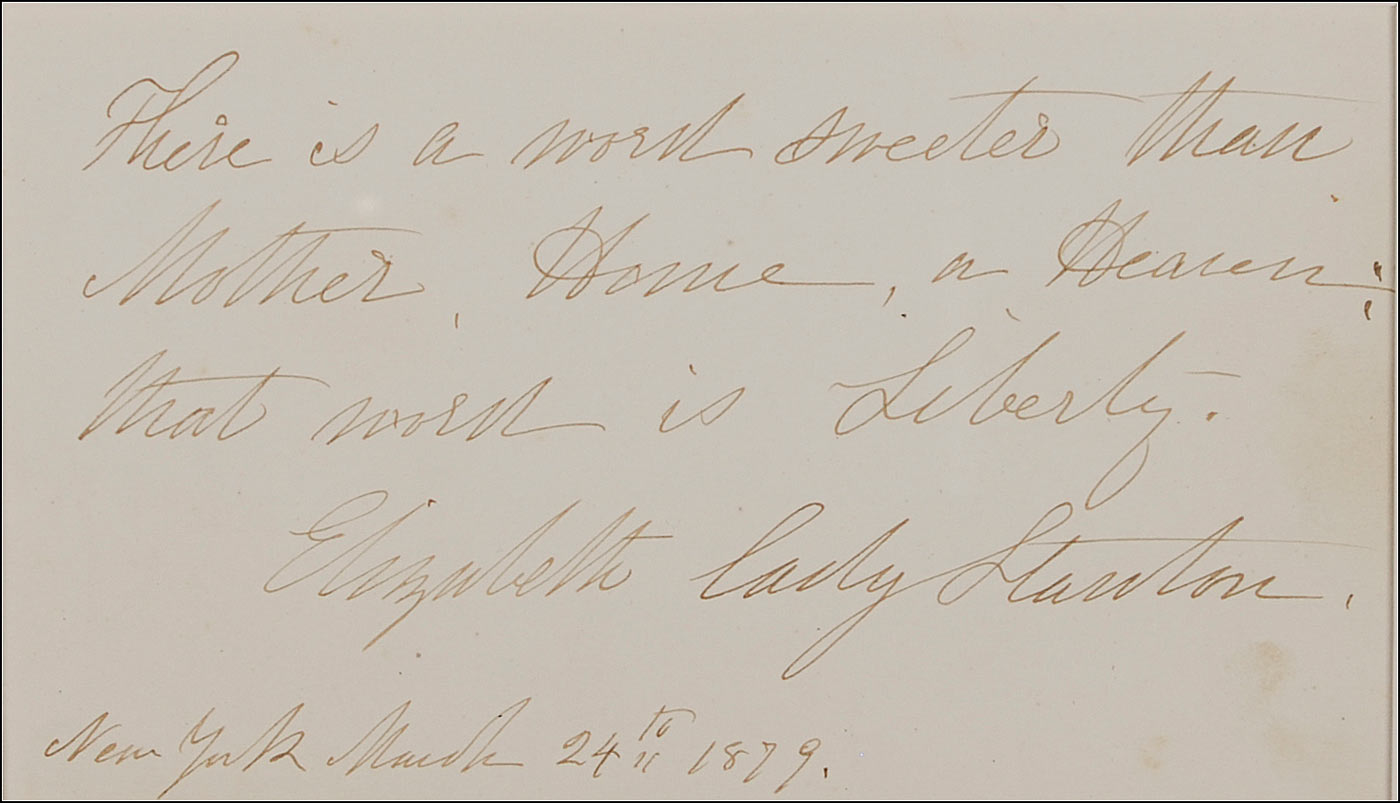 There is a word sweeter than
Mother, Home, or Heaven;
that word is Liberty.
Elizabeth Cady Stanton.
New York March 24th 1879.